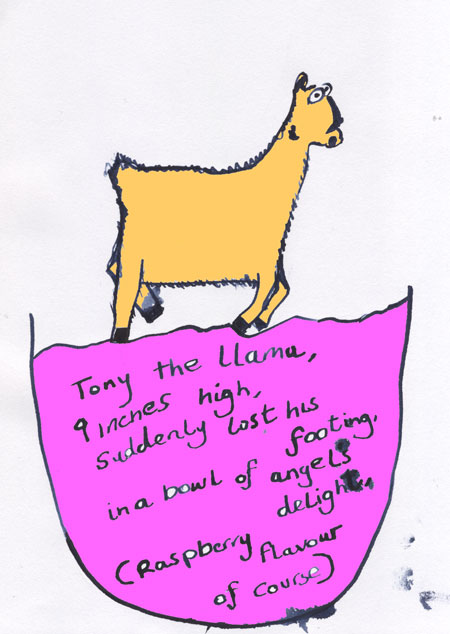 Tony the Llama,
9 inches high,
suddenly lost his
footing,
in a bowl of angels
delight,
(Raspberry flavour
of course)